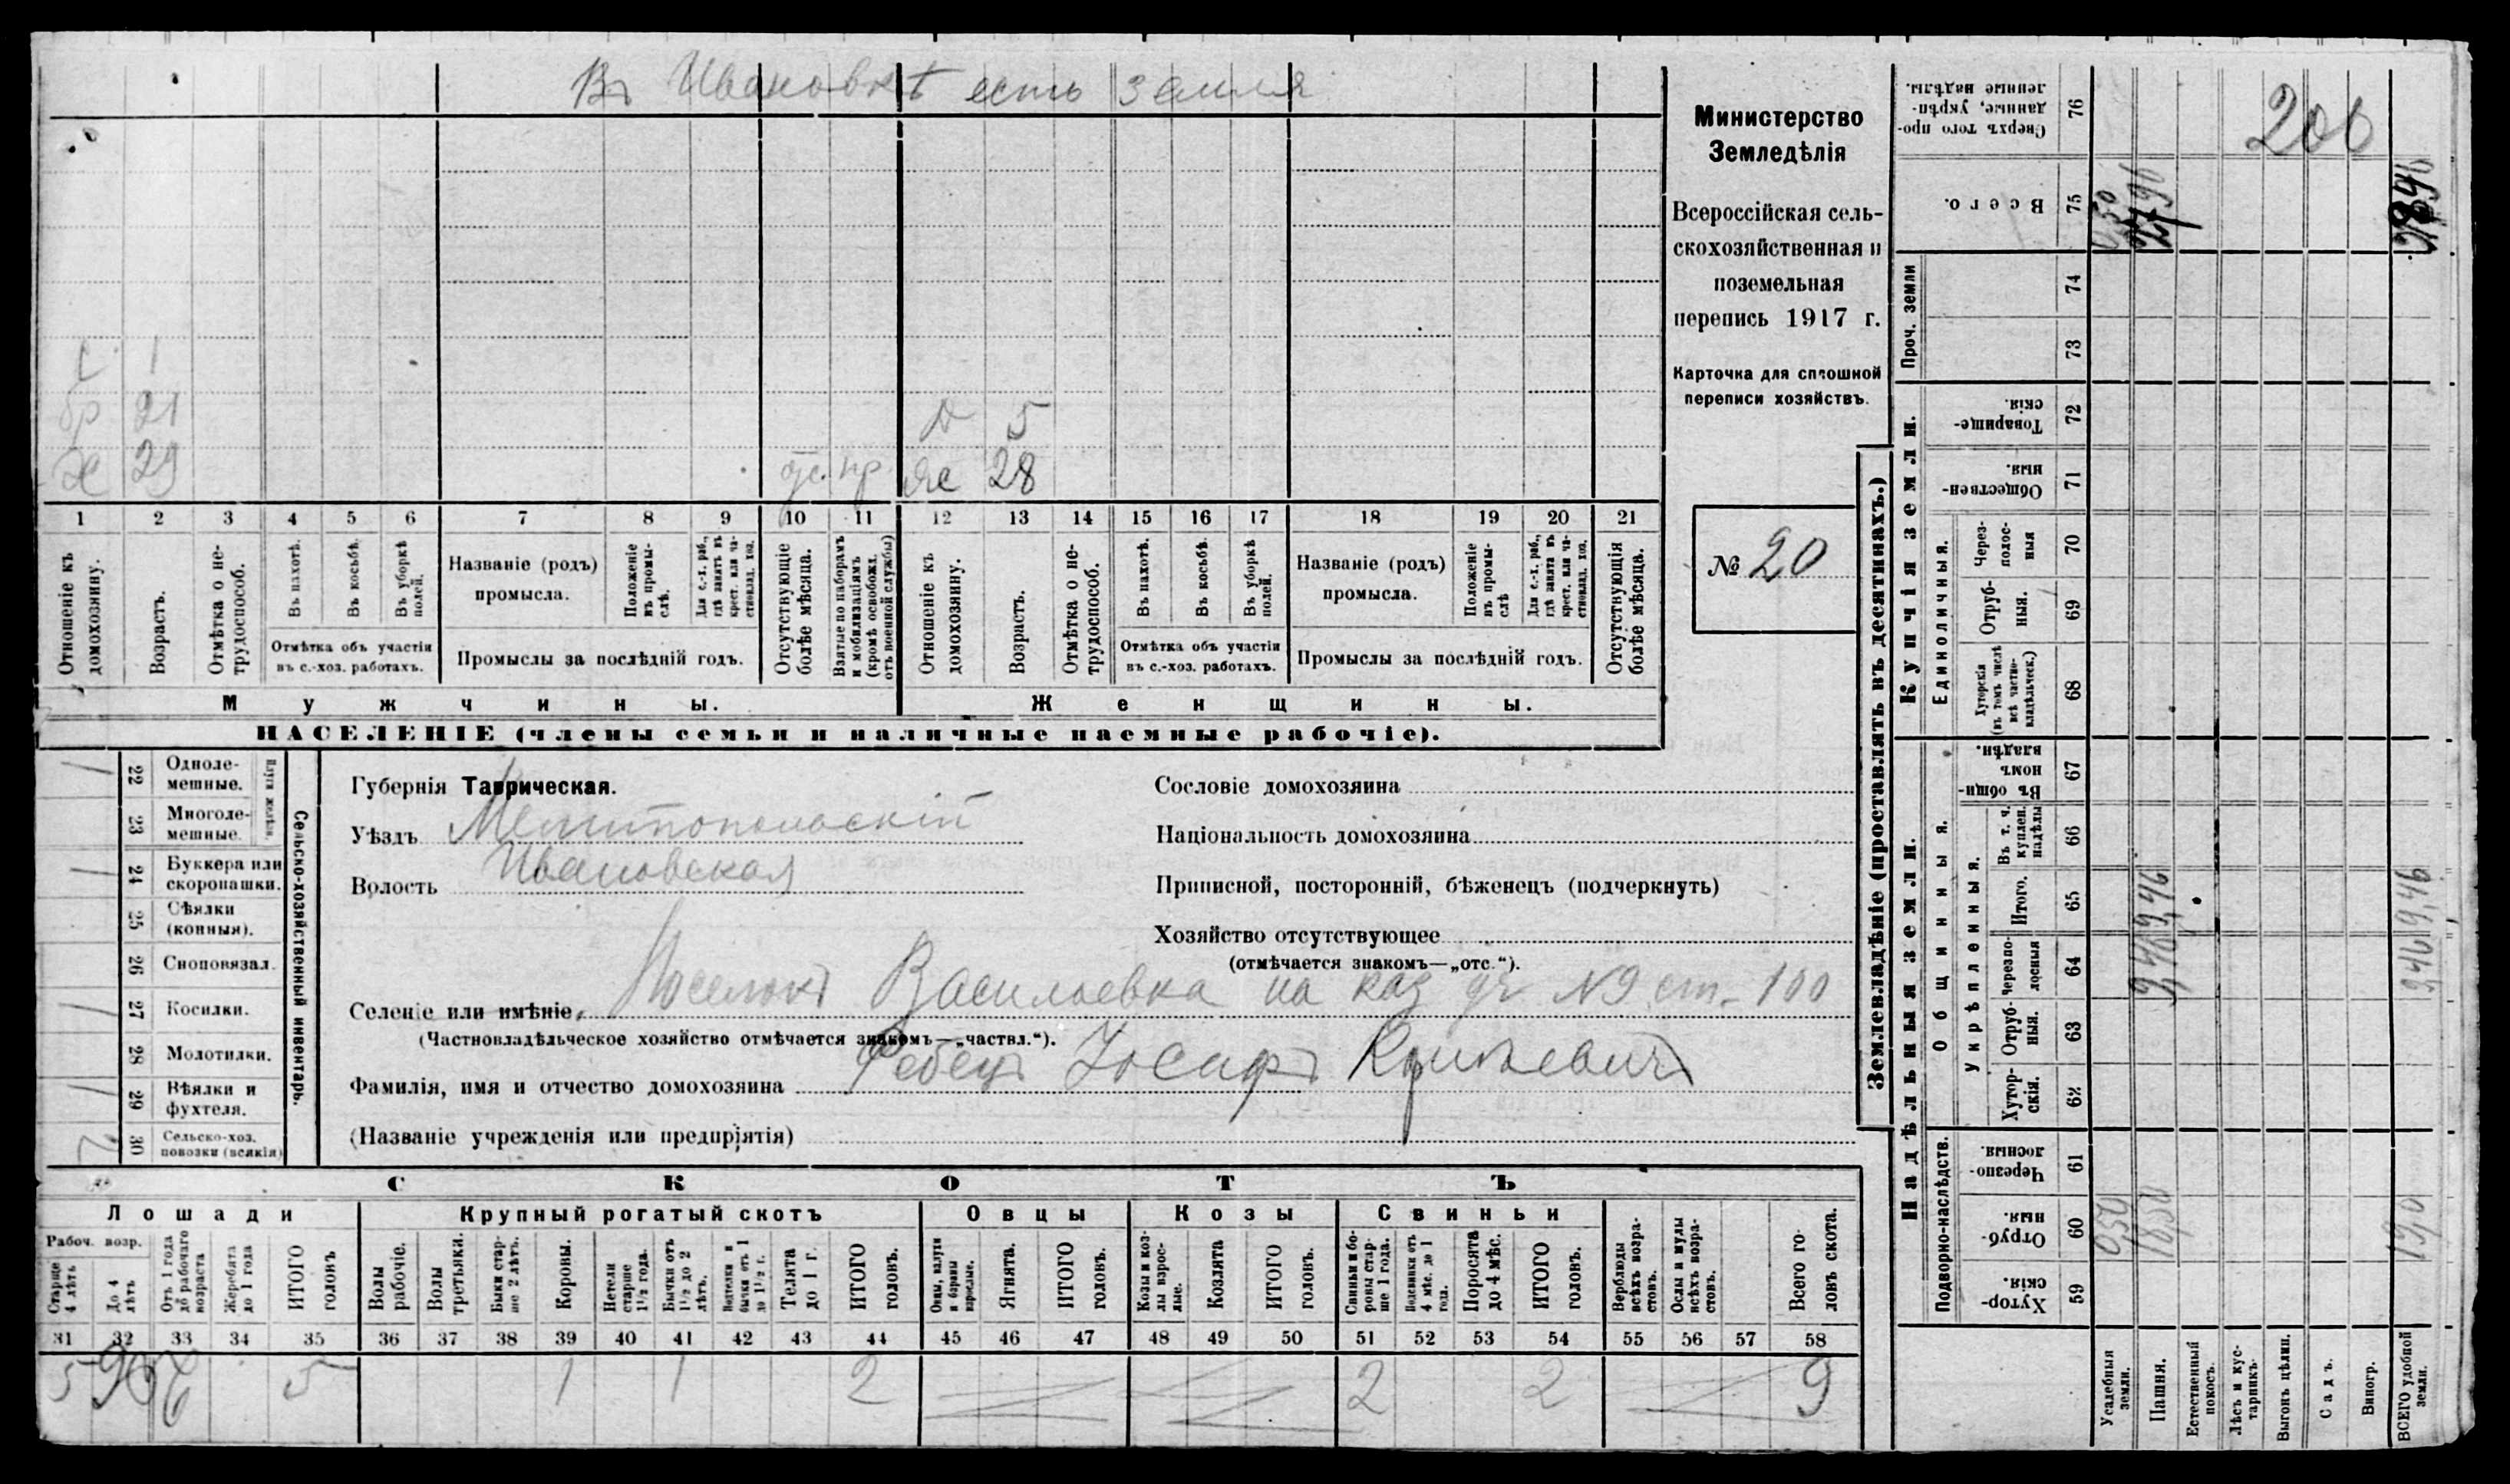 Въ Ивановкѣ есть земля
с 1
бр 21
х 29
от. пр.
д 5
ж 28
1 2 3 4 5 6 7 8 9 10 11 12 13 14 15 16 17 18 19 20 21
Отношеніе къ домохозяину.
Возрастъ.
Отмѣтка о не-
трудоспособ.
Въ пахотѣ.
Въ косьбѣ.
Въ уборкѣ
полей.
Отмѣтка объ участіи
въ с.-хоз. работахъ.
Названіе (родъ)
промысла.
Положеніе
въ промы-
слѣ.
Для с.-х. раб.,
гдѣ занятъ въ
крест. или ча-
стновлад. хоз.
Промыслы за послѣдній годъ.
Отсутствующіе
болѣе мѣсяца.
Взятые по наборамъ
и мобилизаціямъ
(кромѣ освобожд.
отъ военной службы)
Отношеніе къ
домохозяину.
Возрастъ.
Отмѣтка о не-
трудоспособ.
Въ пахотѣ.
Въ косьбѣ.
Въ уборкѣ
полей.
Отмѣтка объ участіи
въ с.-хоз. работахъ.
Названіе (родъ)
промысла.
Положеніе
въ промы-
слѣ
Для с.-х. раб.,
гдѣ занята въ
крест. или ча-
стновлад. хоз.
Промыслы за послѣдній годъ.
Отсутствующія
болѣе мѣсяца.
Мужчины.
Женщины.
НАСЕЛЕНІЕ (члены семьи и наличные наемные рабочіе).
Министерство
Земледѣлія
Всероссійская сель-
скохозяйственная и
поземельная
перепись 1917 г.
Карточка для сплошной
переписи хозяйствъ.
№ 20
22 Одноле-
мешные.
23 Многоле-
мешные.
Плуги желѣзн.
24 Буккера или
скоропашки.
25 Сѣялки
(конныя).
26 Сноповязал.
27 Косилки.
28 Молотилки.
29 Вѣялки и
фухтеля.
30 Сельско-хоз.
повозки (всякія)
Сельско-хозяйственный инвентарь.
Губернія Таврическая.
Уѣздъ Мелитопольскій
Волость Ивановская
Сословіе домохозяина
Національность домохозяина
Приписной, посторонній, бѣженецъ (подчеркнуть)
Хозяйство отсутствующее
(отмѣчается знакомъ—„отс.“).
Селеніе или имѣніе Поселокъ Васильевка на каз уч №9 ст. 100
(Частновладѣльческое хозяйство отмѣчается знакомъ—„частвл.“).
Фамилія, имя и отчество домохозяина
(Названіе учрежденія или предпріятія)
СКОТЪ
Лошади
Рабоч. возр.
Старше
4 лѣтъ
До 4
лѣтъ
Отъ 1 года
до рабочаго
возраста
Жеребята
до 1 года
ИТОГО
головъ
Крупный рогатый скотъ
Волы
рабочіе.
Волы
третьяки.
Быки стар-
ше 2 лѣтъ.
Коровы.
Нетели
старше
1½ года.
Бычки отъ
1½ до 2
лѣтъ.
Нетелки и
бычки отъ 1
до 1½ г.
Телята
до 1 г.
ИТОГО
головъ.
Овцы
Овцы, валухи
и бараны
взрослые.
Ягнята.
ИТОГО
головъ.
Козы
Козы и коз-
лы взрос-
лые.
Козлята
ИТОГО
головъ.
Свиньи
Свиньи и бо-
ровы стар-
ше 1 года.
Подсвинки отъ
4 мѣс. до 1
года.
Поросята
до 4 мѣс.
ИТОГО
головъ.
Верблюды
всѣхъ возра-
стовъ.
Ослы и мулы
всѣхъ возра-
стовъ.
Всего го-
ловъ скота.
31 32 33 34 35 36 37 38 39 40 41 42 43 44 45 46 47 48 49 50 51 52 53 54 55 56 57 58
5 5 1 1 2 2 2 9
Землевладѣніе (проставлять въ десятинахъ.)
206
76 Сверхъ того про-
данные, укрѣп-
ленные надѣлы.
75 Всего.
Проч. земли
74
73
Купчія земли.
72 Товарище-
скія.
71 Обществен-
ныя.
Единоличныя.
70 Через-
полос-
ныя
69 Отруб-
ныя.
68 Хуторскія
(въ томъ числѣ
всѣ частно-
владѣльческ.)
Надѣльныя земли.
Общинныя.
67 Въ общи-
номъ
владѣн.
Укрѣпленныя.
66 Въ т. ч.
куплен.
надѣлы
65 Итого.
64 Черезпо-
лосныя
63 Отруб-
ныя.
62 Хутор-
скія.
Подворно-наслѣдств.
61 Черезпо-
лосныя.
60 Отруб-
ныя.
59 Хутор-
скія.
Усадебныя
земли.
Пашня.
Естественный
покосъ.
Лѣсъ и кус-
тарникъ.
Выгонъ цѣлин.
Садъ.
Виногр.
ВСЕГО удобной
земли.
050
1850